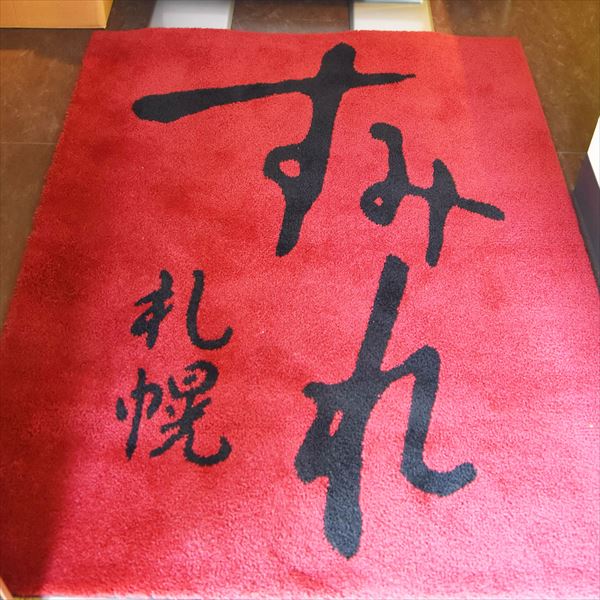 すみれ
札幌